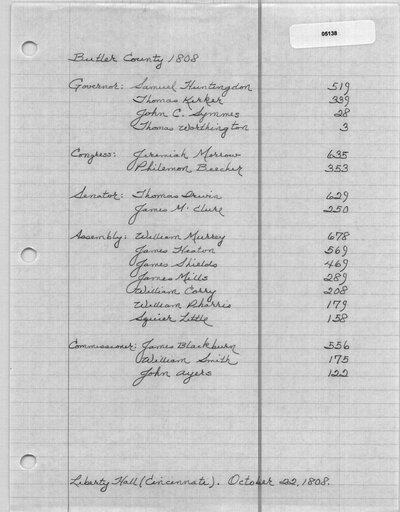 05138
Butler County 1808
Governor: Samuel Huntingdon 519
Thomas Kirker 339
John C. Symmes 28
Thomas Worthington 3
Congress: Jeremiah Morrow 635
Philemon Beecher 353
Senator: Thomas Irwin 629
James McClure 250
Assembly: William Murrey 678
James Heaton 569
James Shields 469
James Mills 289
William Corry 208
William 179
Squier Little 158
Commissioner: James Blackburn 556
William Smith 175
John Ayers 122
Liberty Hall (Cincinnati). October 22, 1808.